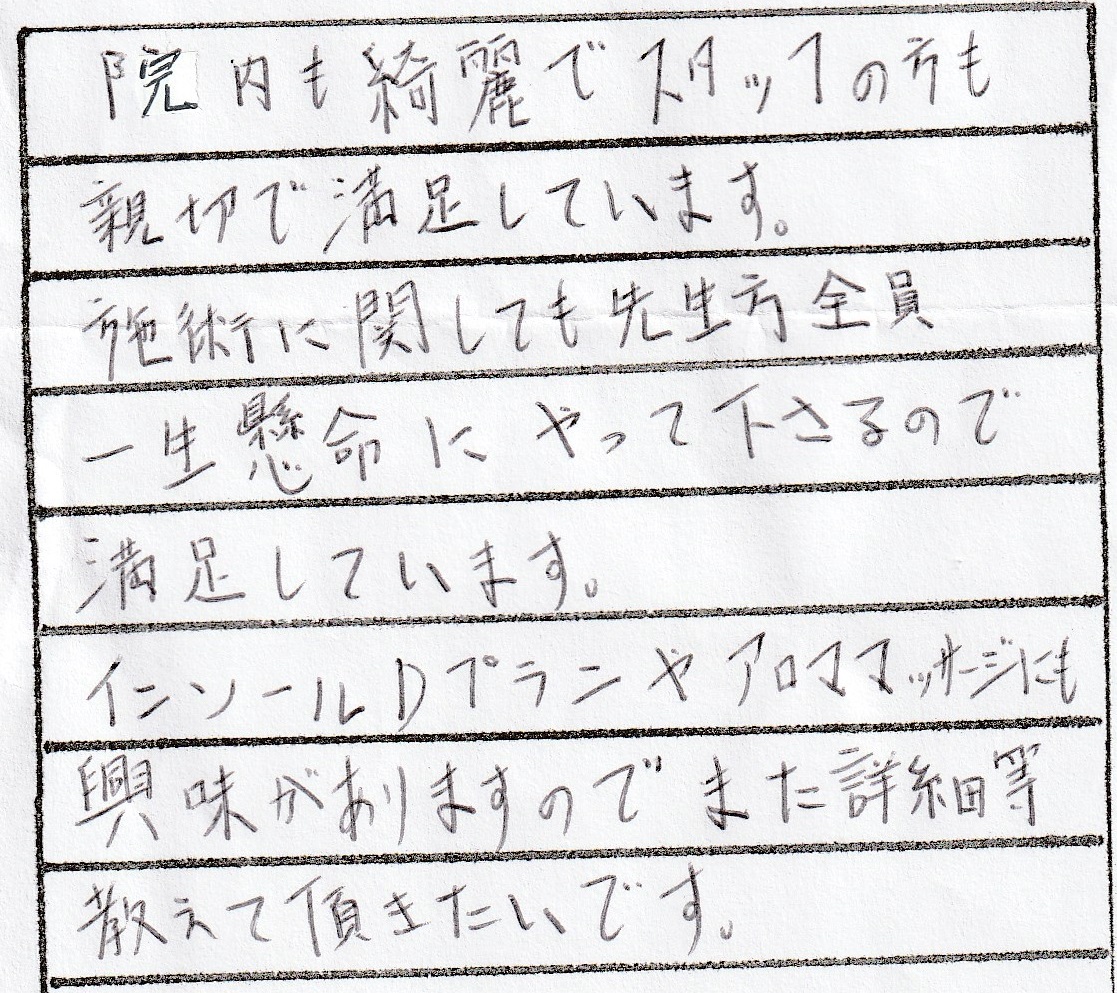 院内も綺麗でスタッフの方も
親切で満足しています。
施術に関しても先生方全員
一生懸命にやって下さるので
満足しています。
インソールDプランやアロママッサージにも
興味がありますのでまた詳細等
教えて頂きたいです。